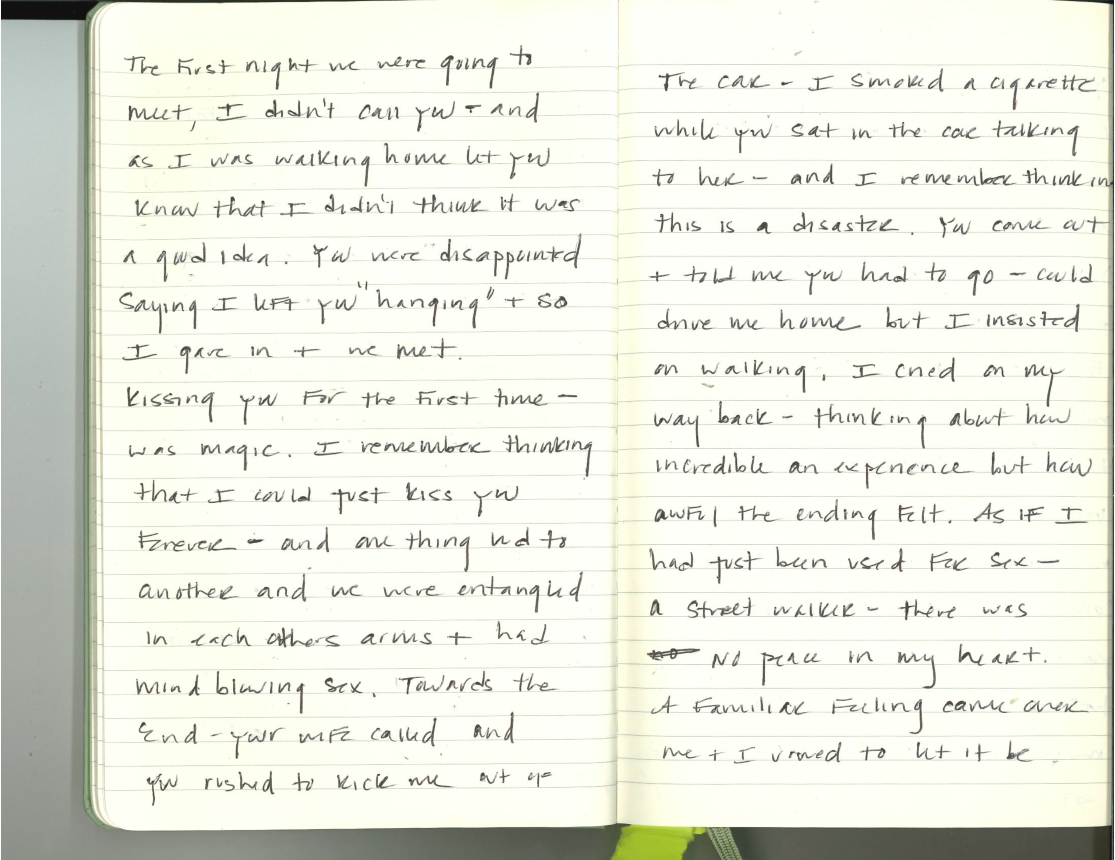 The First night we were going to
meet, I didn't call you - and
as I was walking home let you
know that I didn't think it was
a good idea. You were disappointed
saying I left you "hanging" + so
I gave in + we met.
Kissing you For the First time -
was magic. I remember thinking
that I could just kiss you
Forever - and one thing led to
another and we were entangled
in each others arms + had
mind blowing sex. Towards the
End - your wife called and
you rushed to kick me out of
The car - I smoked a cigarette
while you sat in the car talking
to her - and I remember thinkin
this is a disaster. You came out
+ told me you had to go - could
drive me home but I insisted
on walking. I cried on my
way back - thinking about how
incredible an experience but how
awful the ending Felt. As IF I
had just been used For sex -
a street walker - there was
No peace in my heart.
A Familiar Feeling came over
me + I vowed to let it be